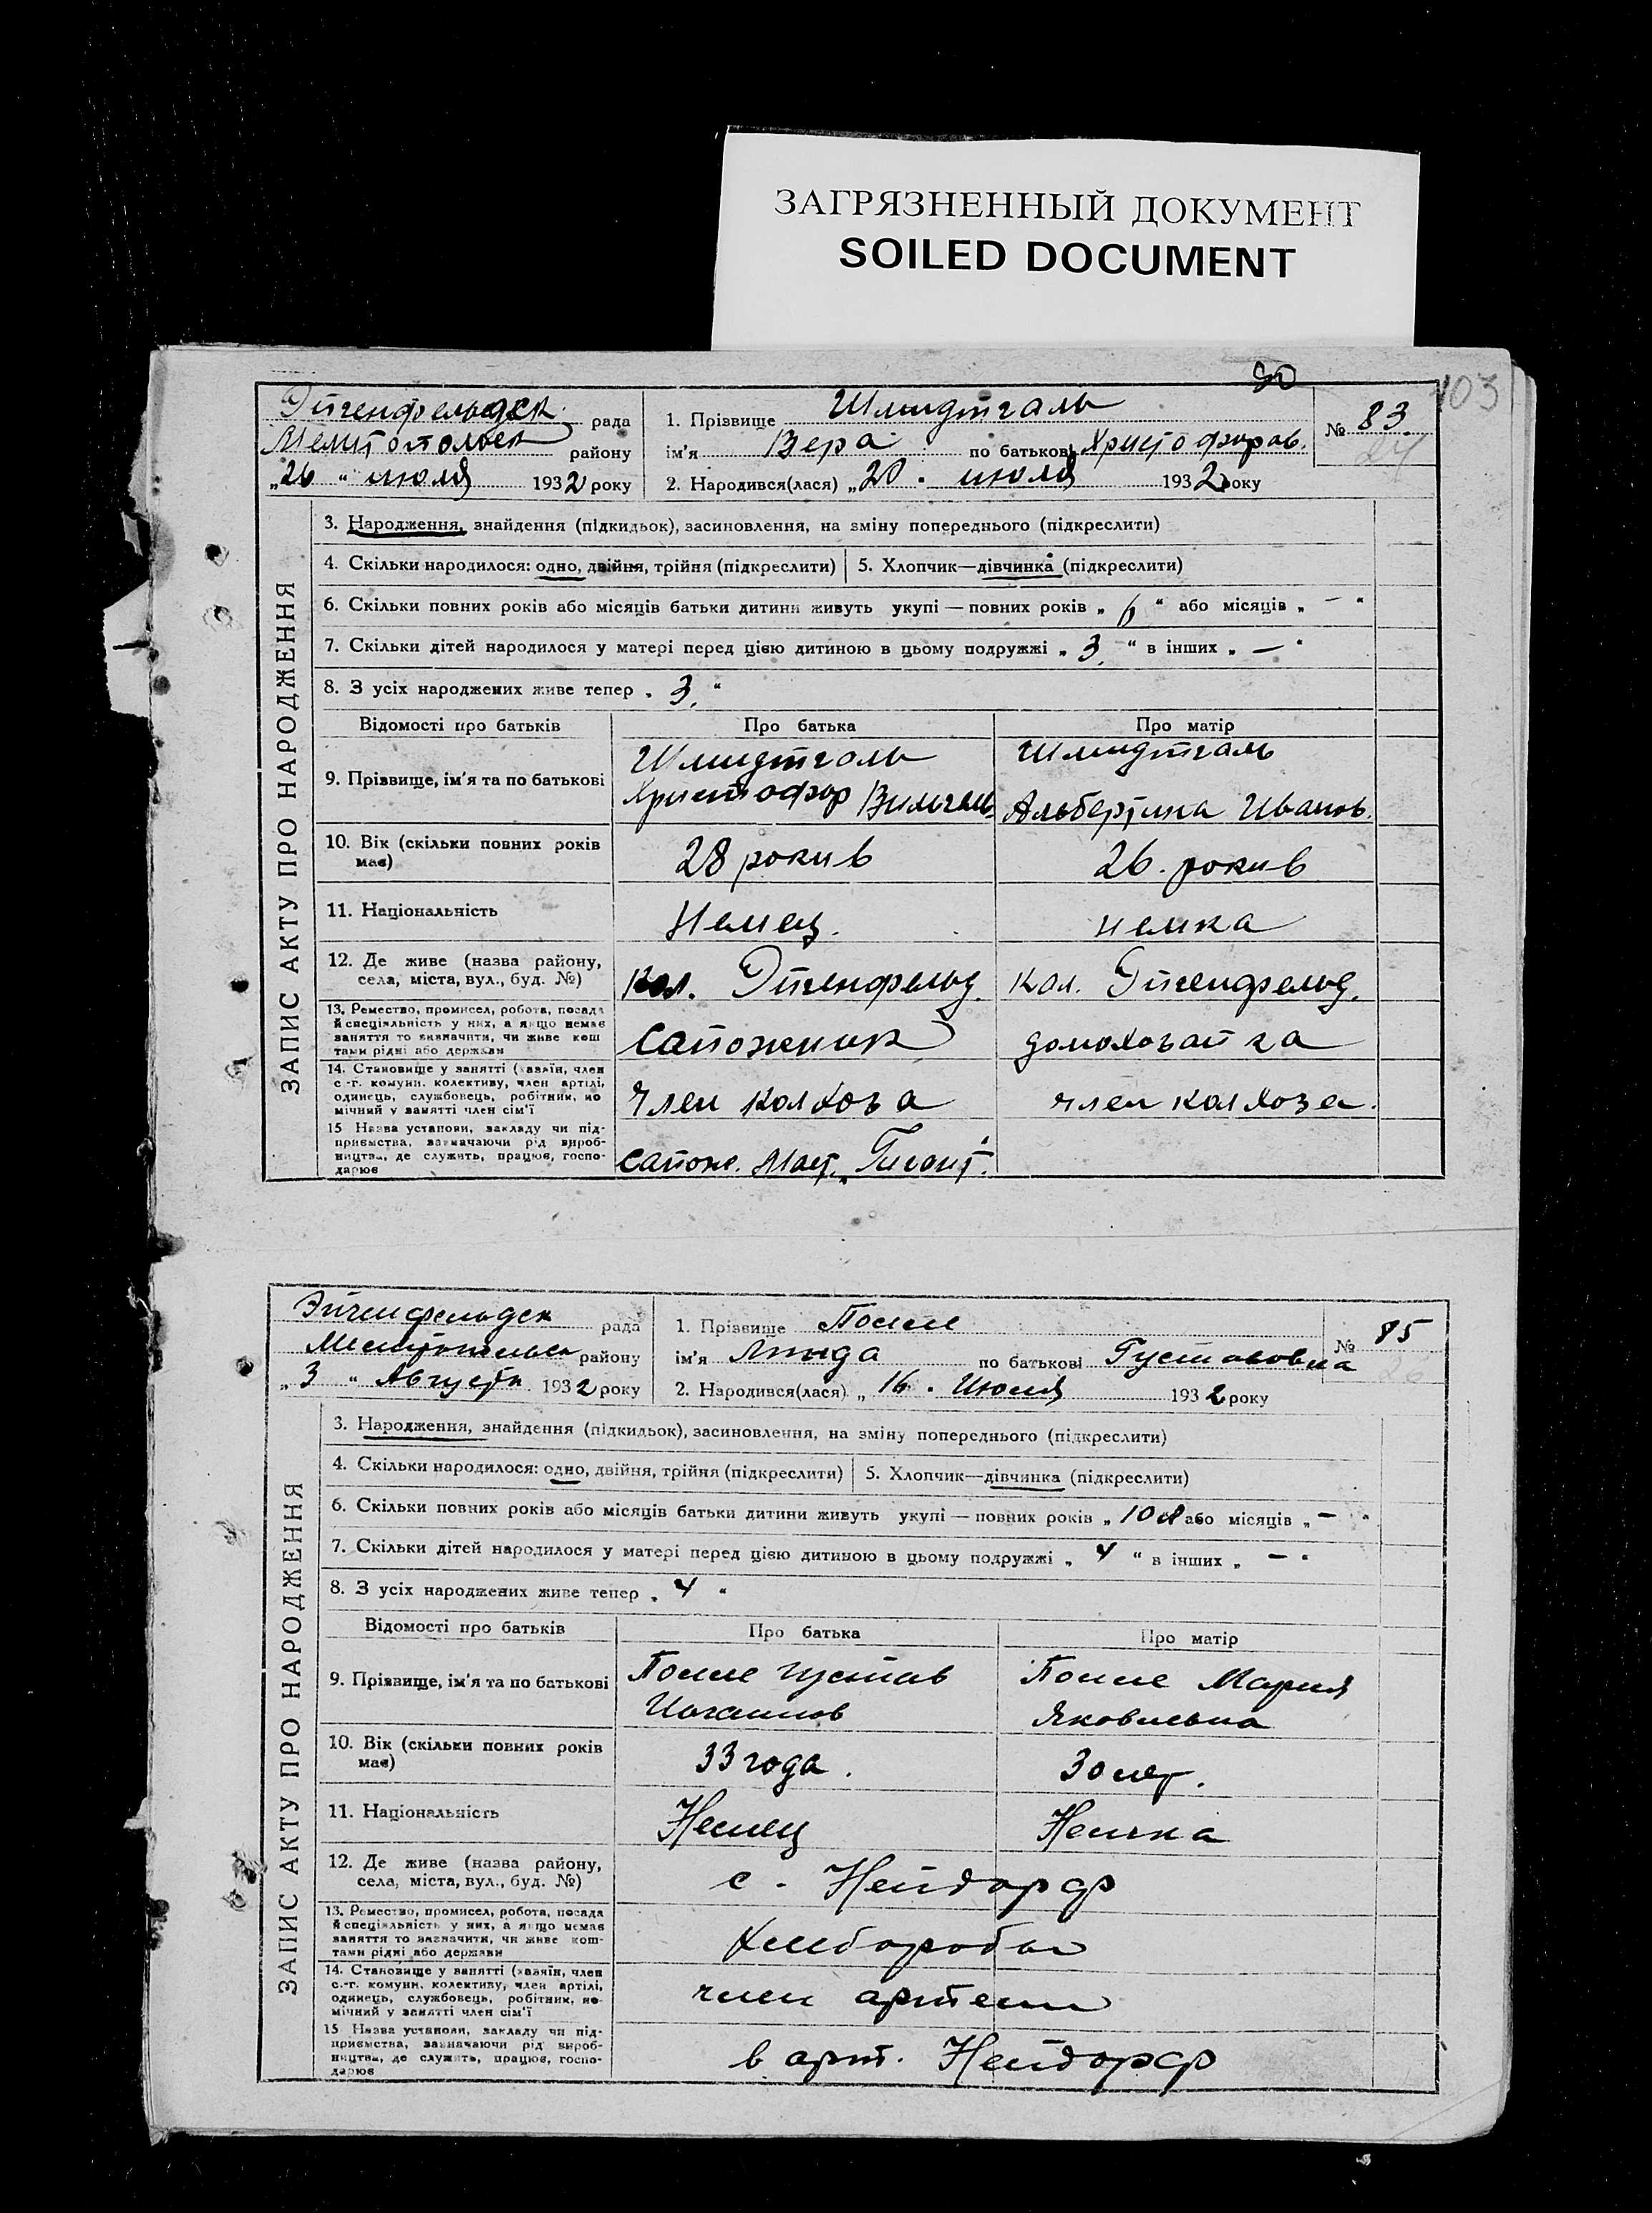 ЗАГРЯЗНЕННЫЙ ДОКУМЕНТ
SOILED DOCUMENT
103
Эйгенфельдск. рада
Мелитопольск району
„26 “ июля 1932 року
1. Прізвище Шмидтгаль
ім'я Вера по батькові Христофоров.
2. Народився(лася) „20. июля 1932 року
№ 83.
ЗАПИС АКТУ ПРО НАРОДЖЕННЯ
3. Народження, знайдення (підкидьок), засиновлення, на зміну попереднього (підкреслити)
4. Скільки народилося: одно, двійня, трійня (підкреслити) 5. Хлопчик—дівчинка (підкреслити)
6. Скільки повних років або місяців батьки дитини живуть укупі — повних років „ 6 “ або місяців „ — “
7. Скільки дітей народилося у матері перед цією дитиною в цьому подружжі „ 3. “ в інших „ — “
8. З усіх народжених живе тепер „ 3. “
Відомості про батьків Про батька Про матір
9. Прізвище, ім'я та по батькові Шмидтгаль Христофор Вильгель. Шмидтгаль Альбертина Иванов.
10. Вік (скільки повних років має) 28 рокив 26. рокив
11. Національність Немец. немка
12. Де живе (назва району, села, міста, вул., буд. №) Кол. Эйгенфельд. Кол. Эйгенфельд.
13. Ремество, промисел, робота, посада й спеціяльність у них, а якщо немає заняття то визначити, чи живе кош тами рідні або держави Сапожник домохозайка
14. Становище у занятті (хазяїн, член с.-г. комуни. колективу, член артілі, одинець, службовець, робітник, по мічний у занятті член сім'ї Член колхоза член колхоза.
15 Назва установи, закладу чи підприємства, зазначаючи рід виробництва, де служить, працює, господарює сапож. маст. „Гигант.
Эйгенфельдск рада
Мелитопольск району
„ 3 “ Августа 1932 року
1. Прізвище Поппе
ім'я Линда по батькові Густавовна
2. Народився(лася) „ 16. Июля 1932 року
№ 85
26
ЗАПИС АКТУ ПРО НАРОДЖЕННЯ
3. Народження, знайдення (підкидьок), засиновлення, на зміну попереднього (підкреслити)
4. Скільки народилося: одно, двійня, трійня (підкреслити) 5. Хлопчик—дівчинка (підкреслити)
6. Скільки повних років або місяців батьки дитини живуть укупі — повних років „ 10 або місяців „ — “
7. Скільки дітей народилося у матері перед цією дитиною в цьому подружжі „ 4 “ в інших „ — “
8. З усіх народжених живе тепер „ 4 “
Відомості про батьків Про батька Про матір
9. Прізвище, ім'я та по батькові Поппе Густав Иоганнов Поппе Мария Яковлевна
10. Вік (скільки повних років має) 33 года. 30 лет.
11. Національність Немец Немка
12. Де живе (назва району, села, міста, вул., буд. №) с. Нейдорф
13. Ремество, промисел, робота, посада й спеціяльність у них, а якщо немає заняття то визначити, чи живе коштами рідні або держави Хлеборобы
14. Становище у занятті (хазяїн, член с.-г. комуни. колективу, член артілі, одинець, службовець, робітник, помічний у занятті член сім'ї член артели
15 Назва установи, закладу чи підприємства, зазначаючи рід виробництва, де служить, працює, господарює в арт. Нейдорф